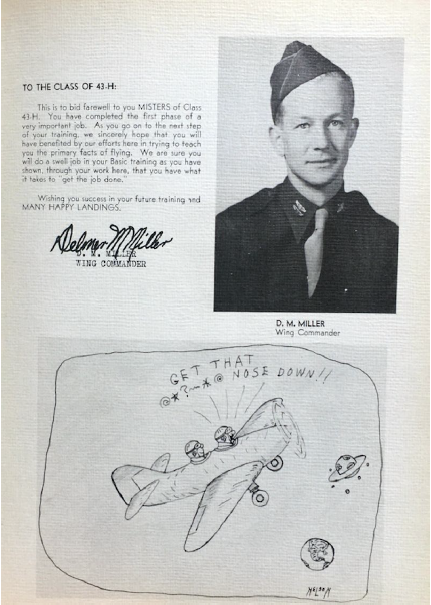 TO THE CLASS OF 43-H:
This is to bid farewell to you MISTERS of Class
43-H. You have completed the first phase of a
very important job. As you go on to the next step
of your training, we sincerely hope that you will
have benefited by our efforts here in trying to teach
you the primary facts of flying. We are sure you
will do a swell job in your Basic training as you have
shown, through your work here, that you have what
it takes to "get the job done."
Wishing you success in your future training and
MANY HAPPY LANDINGS.
Delmer M Miller
D. M. MILLER
WING COMMANDER
D. M. MILLER
Wing Commander
GET THAT
@*?—*@ NOSE DOWN!!
NELSON